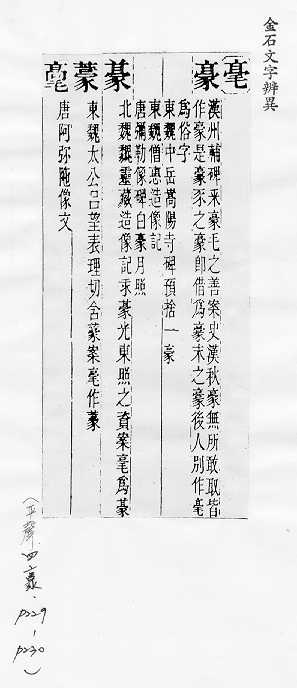 金石文字辨異
亳
豪 漢州輔碑采豪毛之善案史漢秋豪無所敢取皆
作豪是豪豕之豪即借爲豪末之豪後人別作毫
爲俗字
東魏中岳嵩陽寺碑預捨一豪
東魏僧惠造像記
唐彌勒像碑白豪月照
北魏魏靈藏造像記求豪光東照之資案毫爲
東魏太公呂望表理切含 案毫作
唐阿弥陁像文
(平聲四豪.
p229
-
p230)